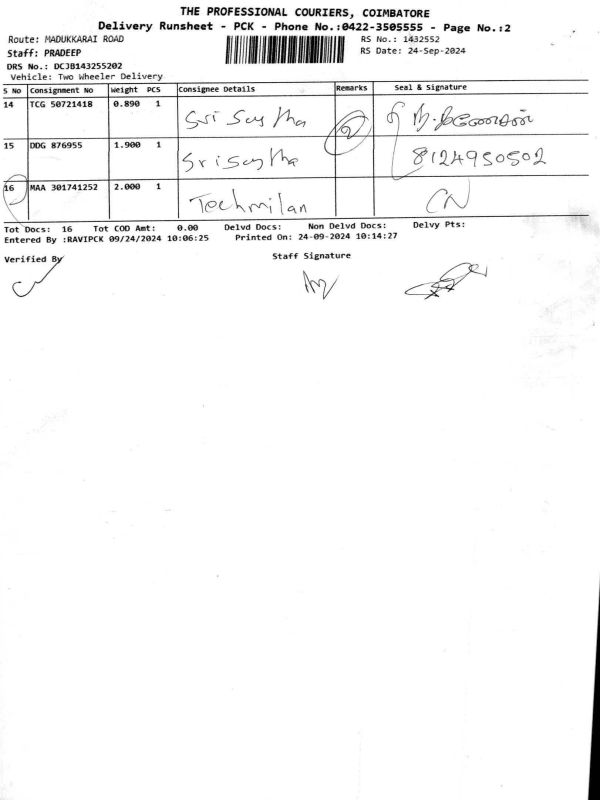 THE PROFESSIONAL COURIERS, COIMBATORE
Delivery Runsheet - PCK - Phone No.:0422-3505555 - Page No.:2
Route: MADUKKARAI ROAD RS No.: 1432552
Staff: PRADEEP RS Date: 24-Sep-2024
DRS No.: DCJB143255202
Vehicle: Two Wheeler Delivery
S No Consignment No Weight PCS Consignee Details Remarks Seal & Signature
14 TCG 50721418 0.890 1 Sri
2
15 DDG 876955 1.900 1 Sri 8124950502
16 MAA 301741252 2.000 1 Techmilan CN
Tot Docs: 16 Tot COD Amt: 0.00 Delvd Docs: Non Delvd Docs: Delvy Pts:
Entered By :RAVIPCK 09/24/2024 10:06:25 Printed On: 24-09-2024 10:14:27
Verified By Staff Signature